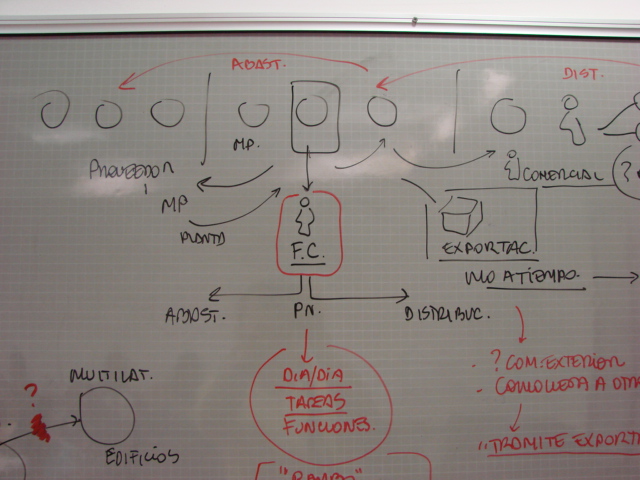 ABAST.
DIST.
MP.
PROVEEDOR
MP
PLANTA
F.C.
?
COMERCIAL
EXPORTAC.
ABAST.
PN.
DISTRIBUC.
NO A TIEMPO.
DIA/DIA
TAREAS
FUNCIONES.
- ? COM. EXTERIOR
- COMO LLEGA A OTRA
"TRAMITE EXPORT
MULTILAT.
?
EDIFICIOS